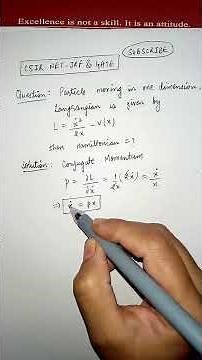 Excellence is not a skill. It is an attitude.
CSIR NET-JRF & GATE
SUBSCRIBE
Question: Particle moving in one dimension,
Langrangian is given
by
L = ẋ²/2x - V(x)
then hamiltonian = ?
Solution: Conjugate Momentum
p = ∂L/∂ẋ = 1/2x (2ẋ) = ẋ/x
⇒ ẋ = px